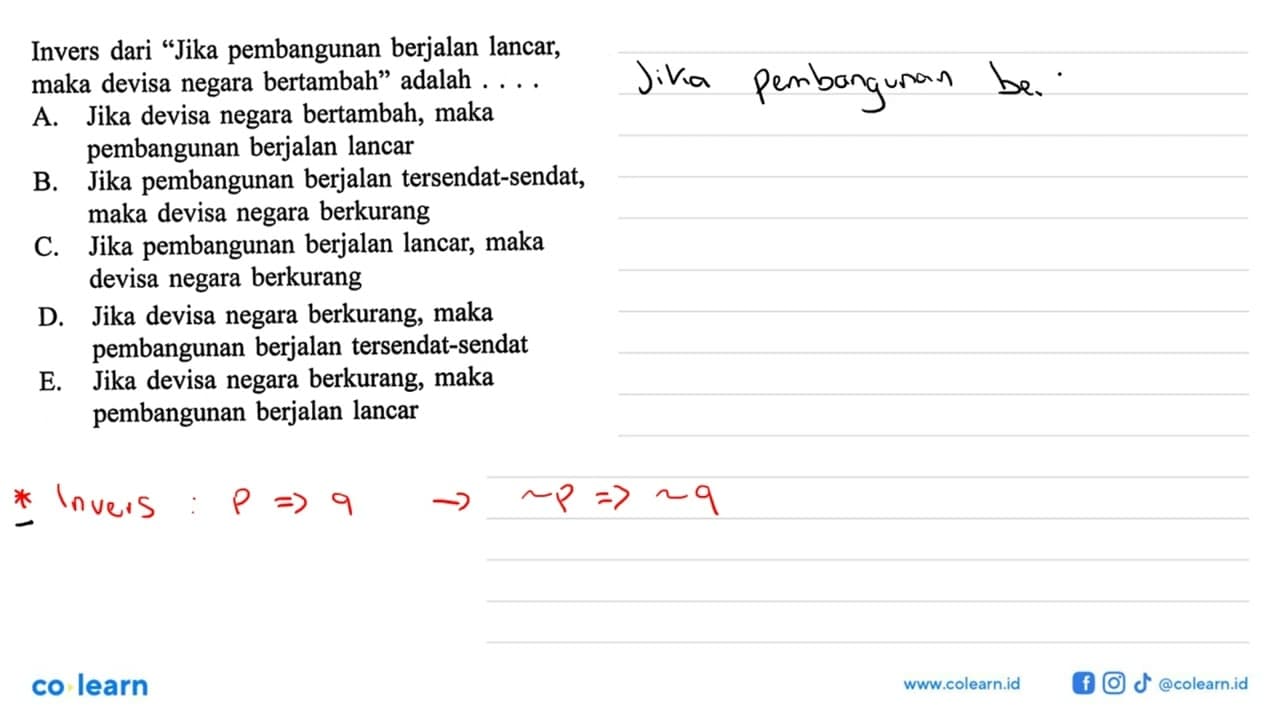 Invers dari “Jika pembangunan berjalan lancar,
maka devisa negara bertambah” adalah . . . .
A. Jika devisa negara bertambah, maka
pembangunan berjalan lancar
B. Jika pembangunan berjalan tersendat-sendat,
maka devisa negara berkurang
C. Jika pembangunan berjalan lancar, maka
devisa negara berkurang
D. Jika devisa negara berkurang, maka
pembangunan berjalan tersendat-sendat
E. Jika devisa negara berkurang, maka
pembangunan berjalan lancar
Jika pembangunan be.
* Invers : p => q → ~p => ~q
co learn
www.colearn.id
@colearn.id